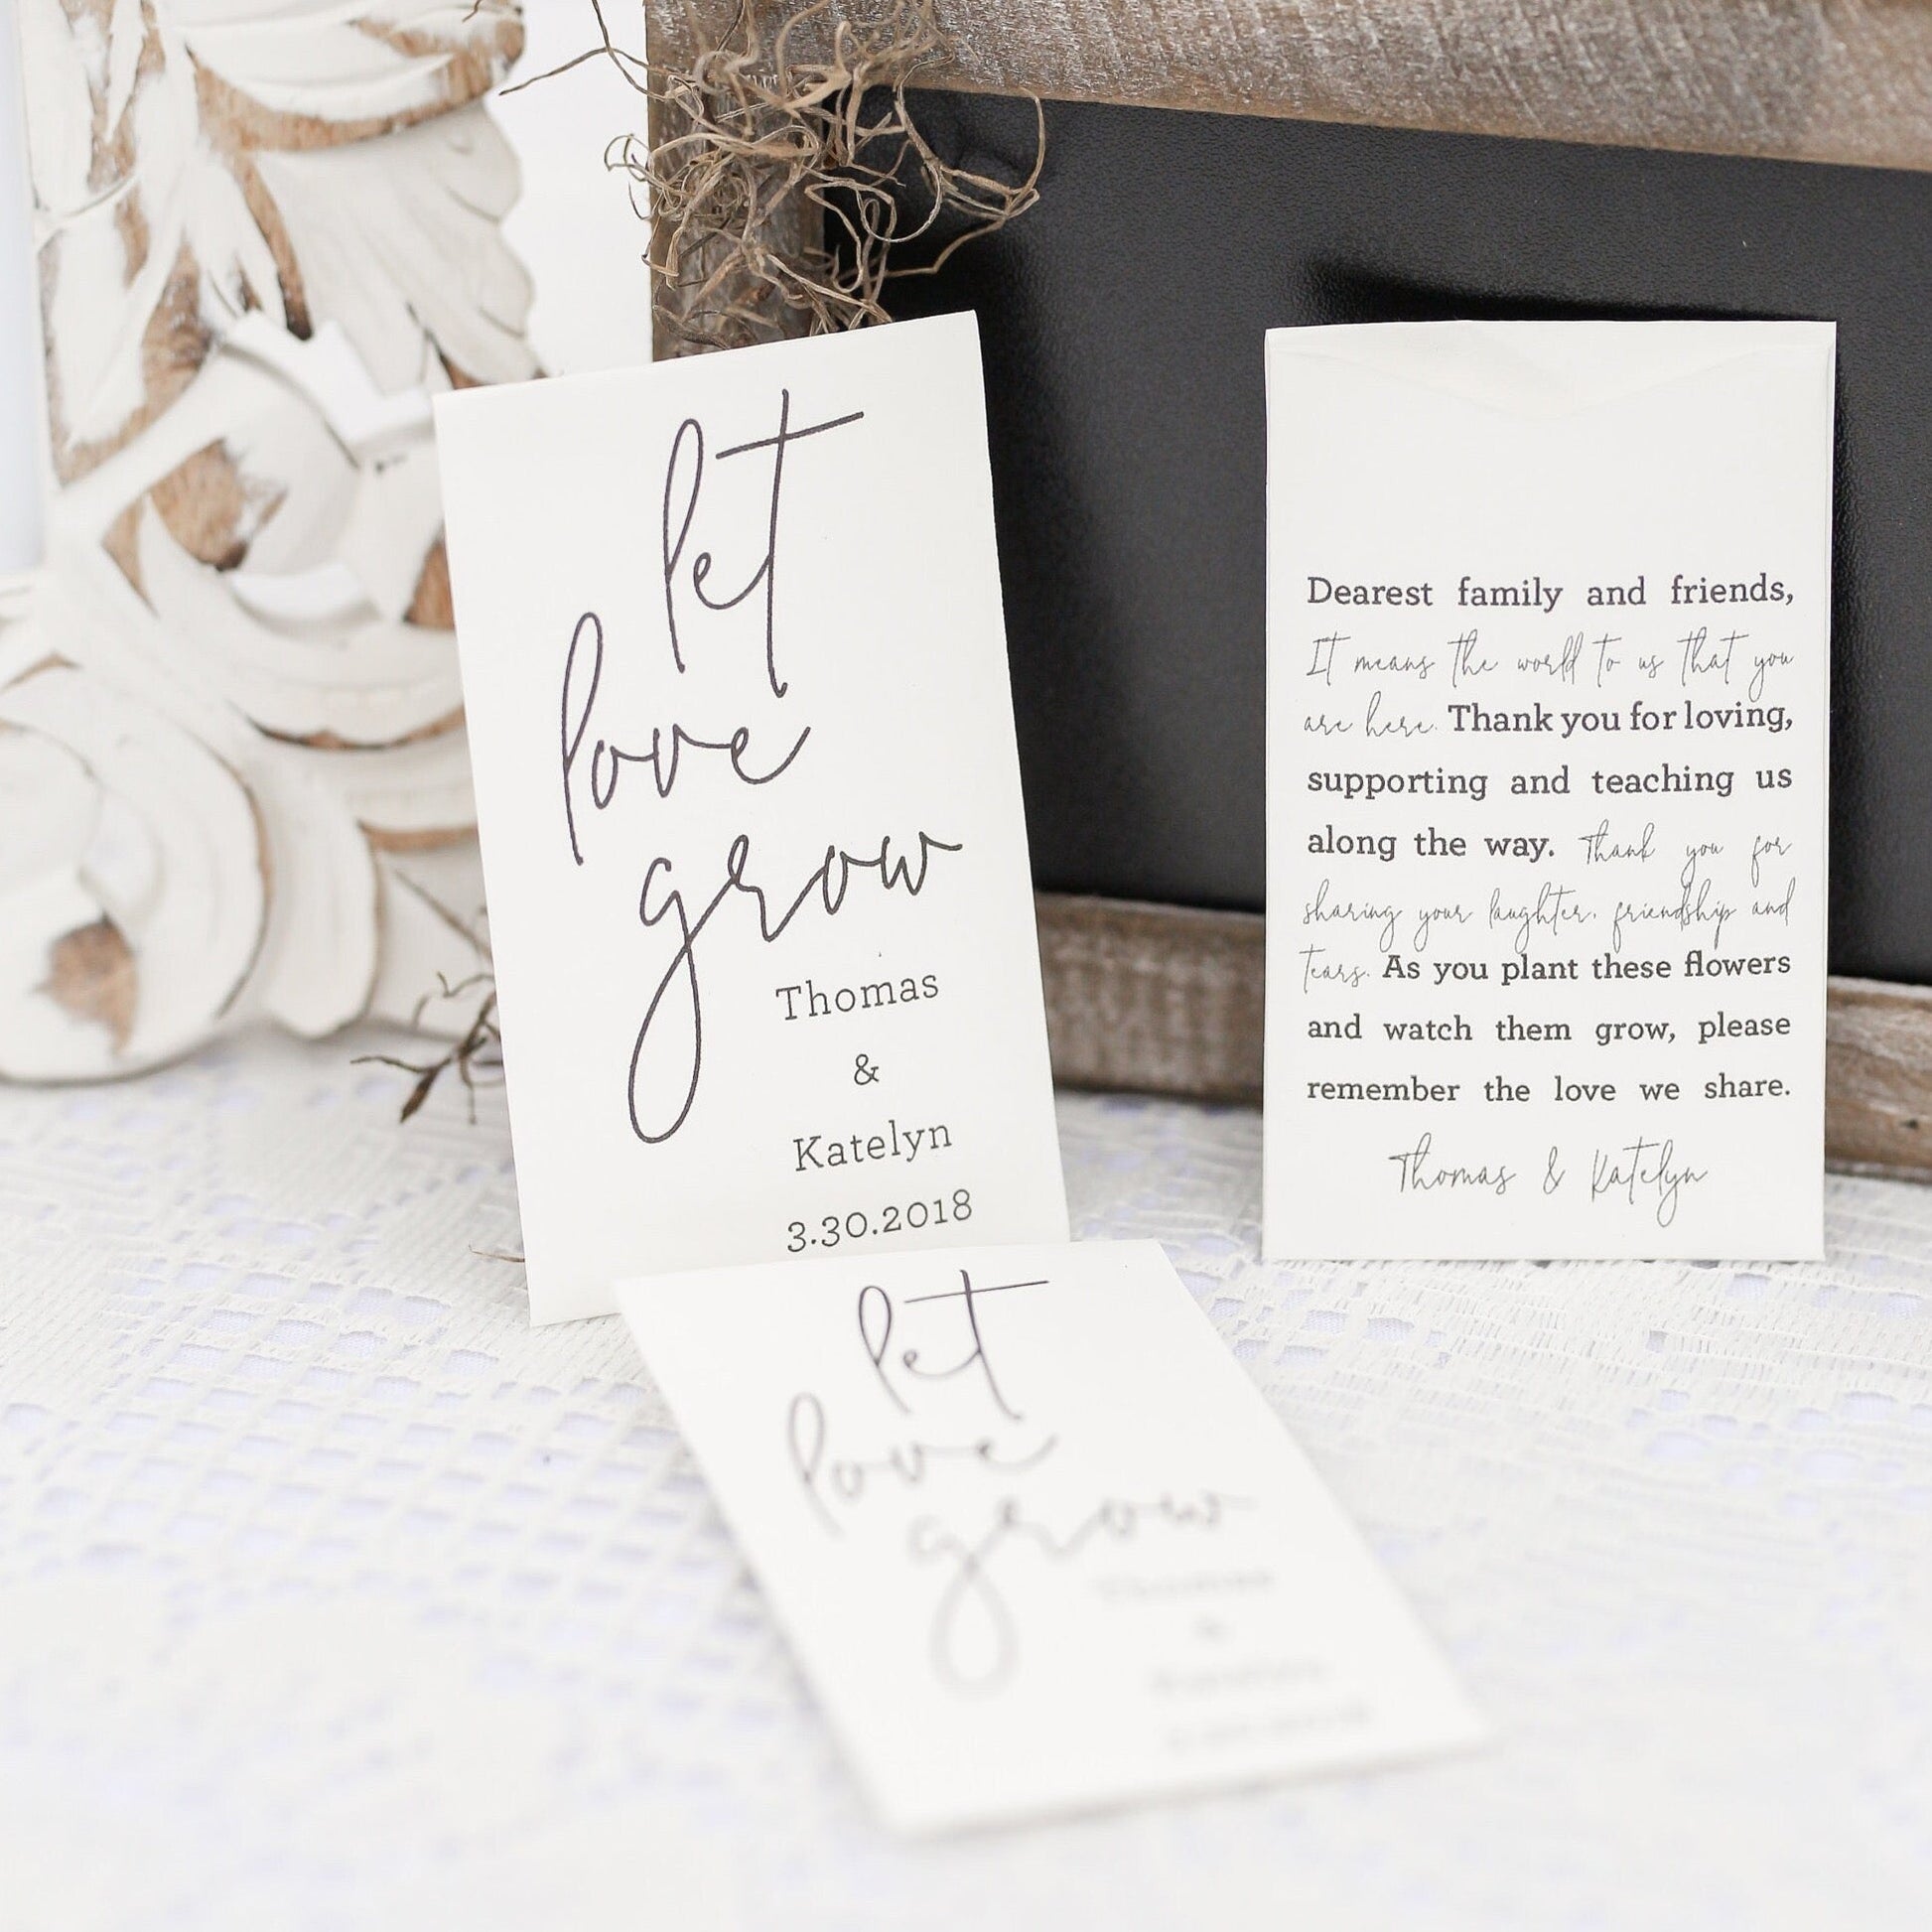 let
love
grow
Thomas
&
Katelyn
3.30.2018
Dearest family and friends,
It means the world to us that you
are here. Thank you for loving,
supporting and teaching us
along the way. Thank you for
sharing your laughter, friendship and
tears. As you plant these flowers
and watch them grow, please
remember the love we share.
Thomas & Katelyn
let
love
grow
Thomas
&
Katelyn